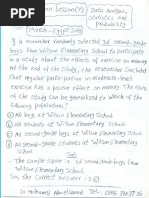 Lesson(7)
Data Analysis,
Statistics and
Probability
[March - Egypt
If a researcher randomly selected 36 second-grade
boys from Wilson Elementary School to participate
in a study about the effects of exercise on mood
At the end of the study, the researcher concluded
that regular participation in moderate-level
exercise has a positive effect on mood. The results
of the study can be generalized to which of the
following populations?
A) All boys at Wilson Elementary School.
B) All students at Wilson Elementary School.
C) All second-grade boys at Wilson Elementary
School.
D) All second-grade students at Wilson Elementary
School.
Sol.
The sample space is 36 second-grade boys from
Wilson Elementary School.
So the correct answer is C
Mohamed Abouelsaoud Tel: